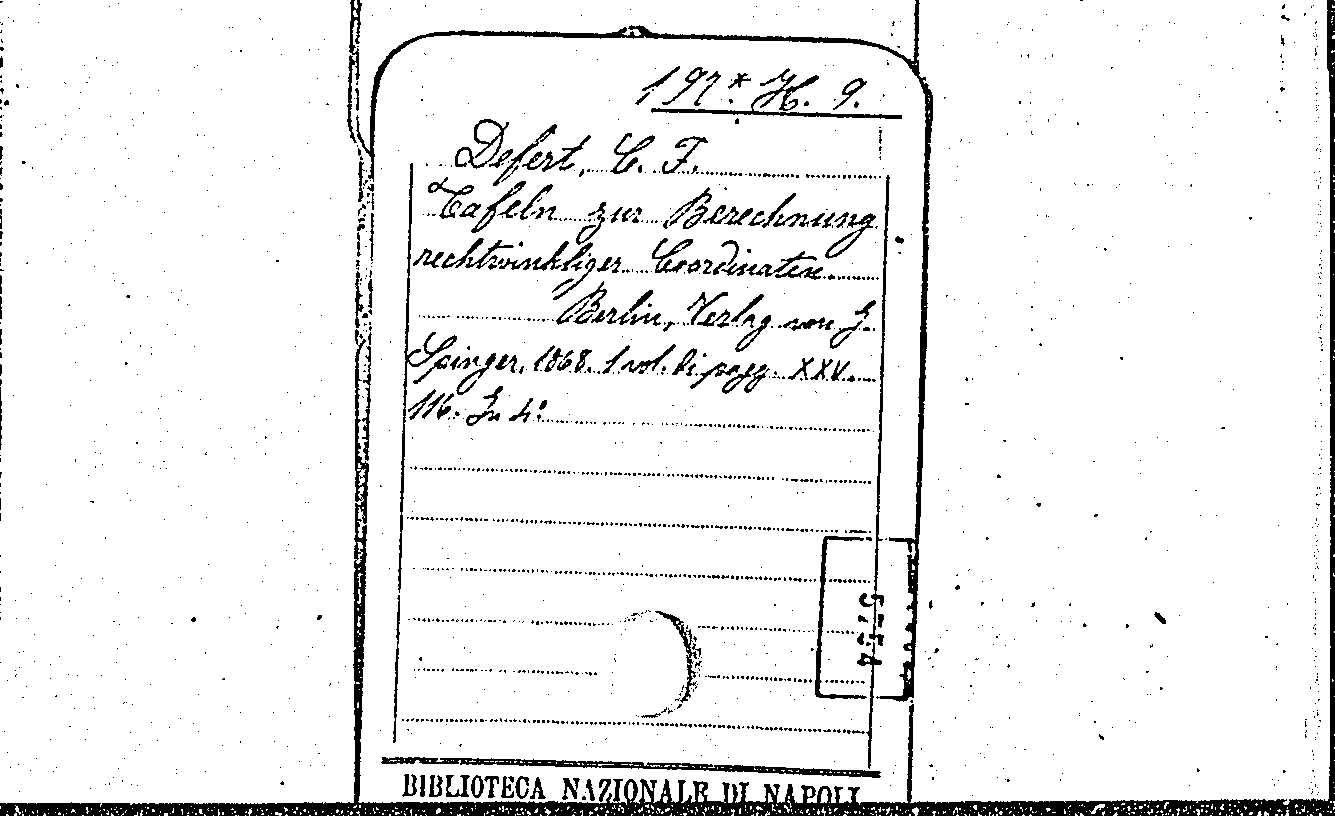 197.* H. 9.
Defert, C. F.
Tafeln zur Berechnung
rechtwinkliger Coordinaten.
Berlin, Verlag von J.
Spinger, 1868. 1 vol. di pagg. XXV.
116. In 4°
BIBLIOTECA NAZIONALE DI NAPOLI